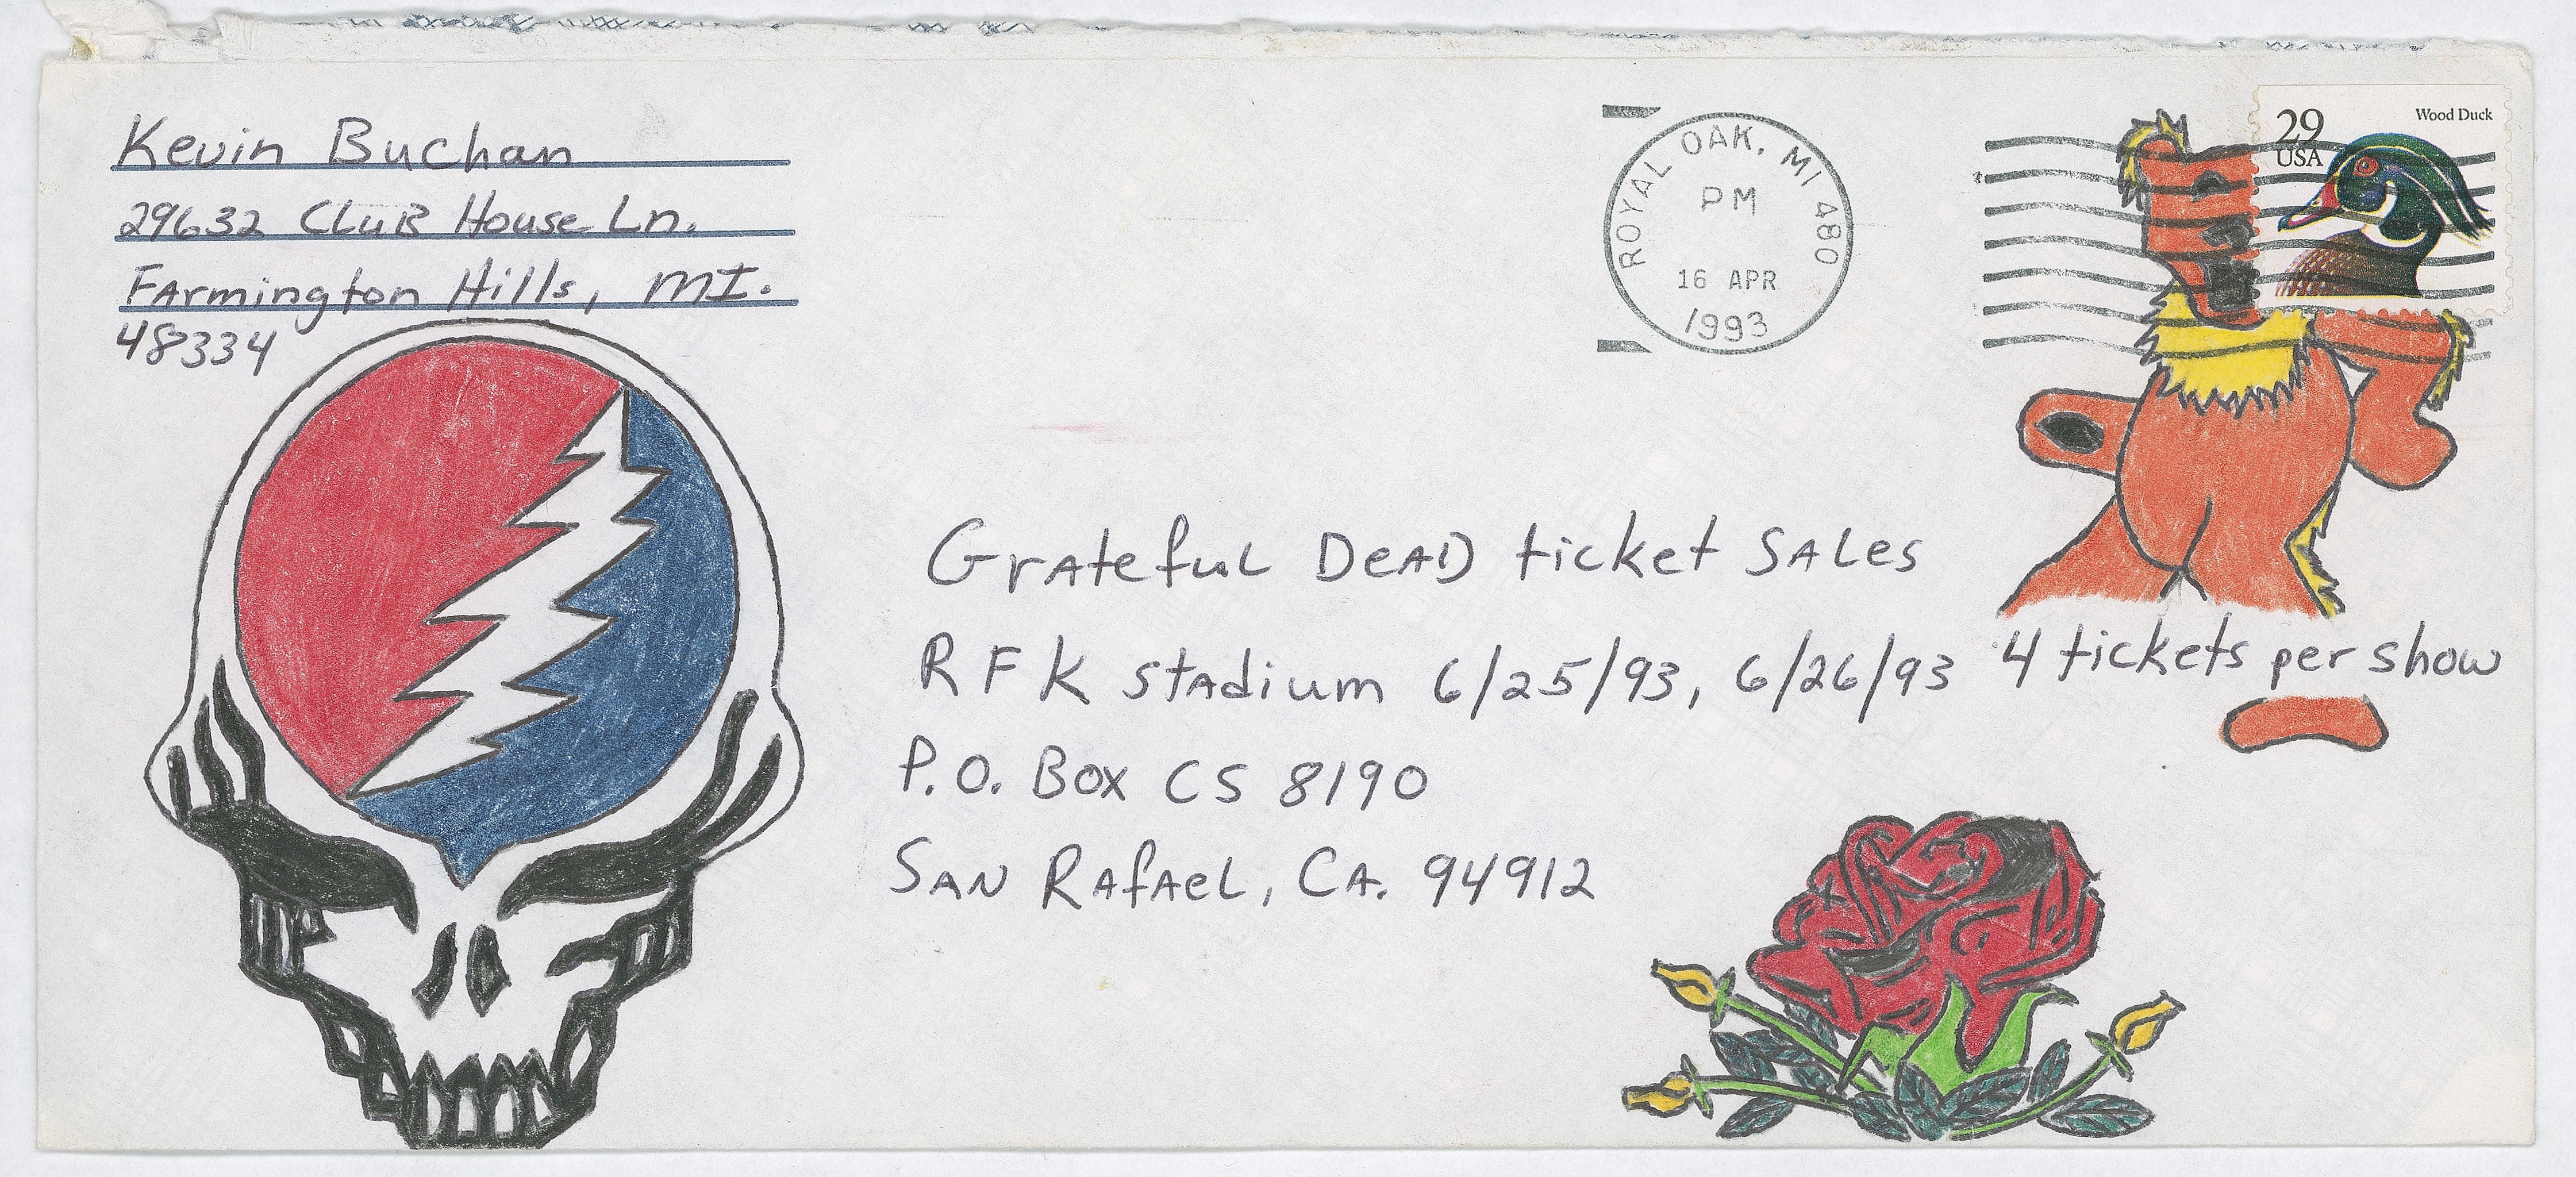 Kevin Buchan
29632 Club House Ln.
Farmington Hills, MI.
48334
ROYAL OAK, MI 480
PM
16 APR
1993
29
USA
Wood Duck
Grateful Dead ticket sales
RFK stadium 6/25/93, 6/26/93 4 tickets per show
P.O. Box CS 8190
San Rafael, CA. 94912